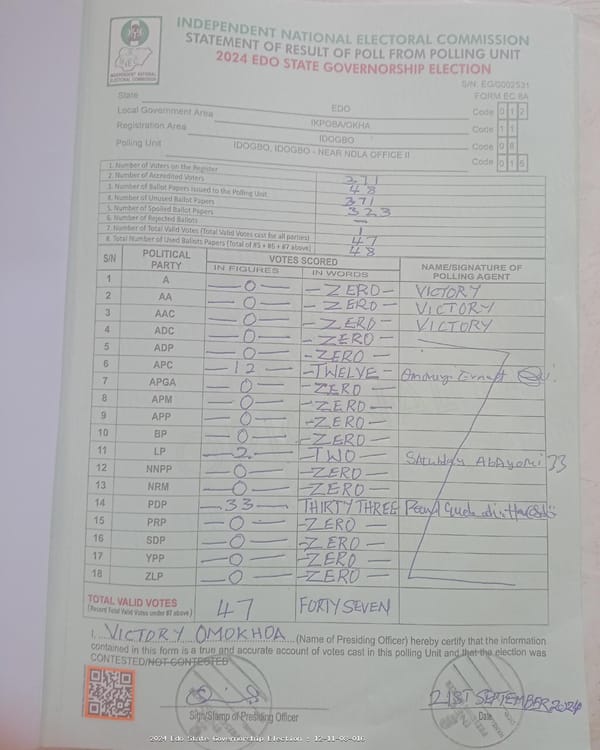 INDEPENDENT NATIONAL ELECTORAL COMMISSION
STATEMENT OF RESULT OF POLL FROM POLLING UNIT
2024 EDO STATE GOVERNORSHIP ELECTION
INDEPENDENT NATIONAL ELECTORAL COMMISSION
S/N: EG/0002531
FORM EC 8A
State EDO Code 0 1 2
Local Government Area IKPOBA/OKHA Code 1 1
Registration Area IDOGBO Code 0 8
Polling Unit IDOGBO, IDOGBO - NEAR NDLA OFFICE II Code 0 1 6
1. Number of Voters on the Register 371
2. Number of Accredited Voters 48
3. Number of Ballot Papers Issued to the Polling Unit 371
4. Number of Unused Ballot Papers 323
5. Number of Spoiled Ballot Papers —
6. Number of Rejected Ballots 1
7. Number of Total Valid Votes (Total Valid Votes cast for all parties) 47
8. Total Number of Used Ballots Papers (Total of #5 + #6 + #7 above) 48
S/N POLITICAL PARTY VOTES SCORED NAME/SIGNATURE OF POLLING AGENT
IN FIGURES IN WORDS
1 A — 0 — — ZERO — VICTORY
2 AA — 0 — — ZERO — VICTORY
3 AAC — 0 — — ZERO — VICTORY
4 ADC — 0 — — ZERO —
5 ADP — 0 — — ZERO —
6 APC — 12 — — TWELVE —
7 APGA — 0 — — ZERO —
8 APM — 0 — — ZERO —
9 APP — 0 — — ZERO —
10 BP — 0 — — ZERO —
11 LP — 2 — — TWO — Saturday Abayomi
12 NNPP — 0 — — ZERO —
13 NRM — 0 — — ZERO —
14 PDP — 33 — THIRTY THREE
15 PRP — 0 — — ZERO —
16 SDP — 0 — — ZERO —
17 YPP — 0 — — ZERO —
18 ZLP — 0 — — ZERO —
TOTAL VALID VOTES 47 FORTY SEVEN
(Record Total Valid Votes under #7 above)
I, VICTORY OMOKHOA (Name of Presiding Officer) hereby certify that the information
contained in this form is a true and accurate account of votes cast in this polling Unit and that the election was
CONTESTED/NOT CONTESTED
21ST SEPTEMBER 2024
Sign/Stamp of Presiding Officer Date
2024 Edo State Governorship Election : 12-11-08-016